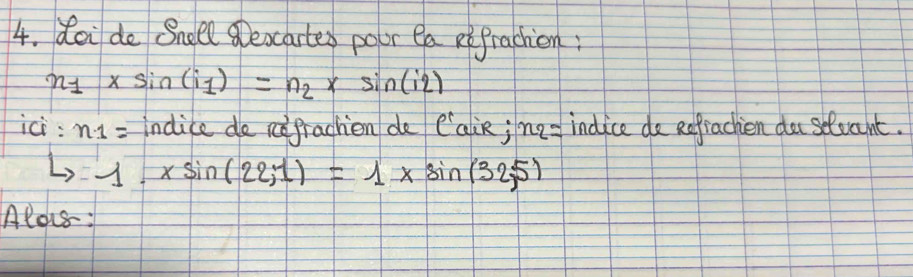 4. Loi de Snell Descartes pour la réfraction :
n1 x sin(i1) = n2 x sin(i2)
ici : n1 = indice de réfraction de l'air ; n2 = indice de réfraction du solvant.
↳ 1 x sin(22,1) = 1 x sin(32,5)
Alors :